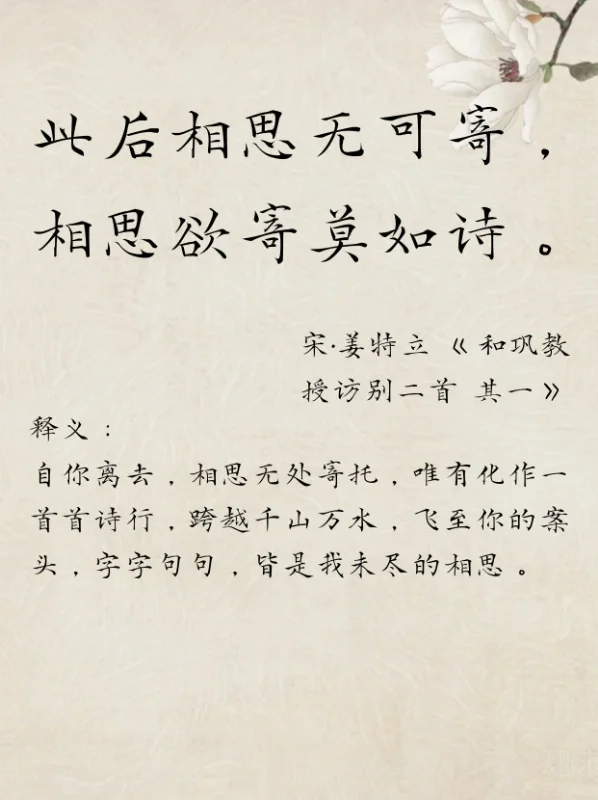 此后相思无可寄，
相思欲寄莫如诗。
宋·姜特立《和巩教
授访别二首 其一》
释义：
自你离去，相思无处寄托，唯有化作一
首首诗行，跨越千山万水，飞至你的案
头，字字句句，皆是我未尽的相思。